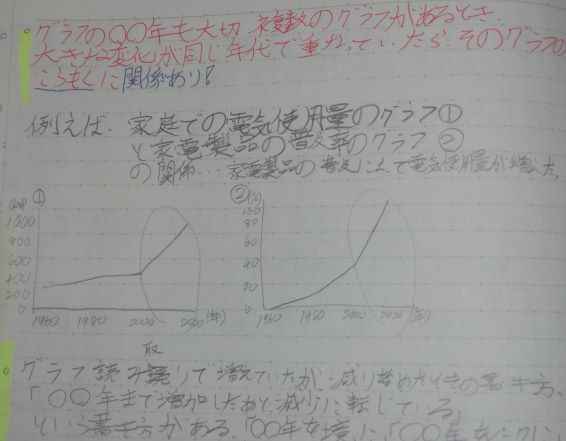 グラフの〇〇年も大切 複数のグラフがあるとき、
大きな変化が同じ年代で重なっていたら、そのグラフの
こうもくに関係あり!
例えば、家庭での電気使用量のグラフ①
と家電製品の普及率のグラフ②
の関係… 家電製品の普及によって電気使用量が増えた。
①
1000
800
600
400
200
0
1960 1980 2000 2020 (年)
② (%)
100
80
60
40
20
0
1960 1980 2000 2020 (年)
取
グラフ読み取りで増えていたが、減り始めたときの書き方、
「〇〇年まで増加したあと減少に転じている」
という書き方がある。「〇〇年を境に」「〇〇年を